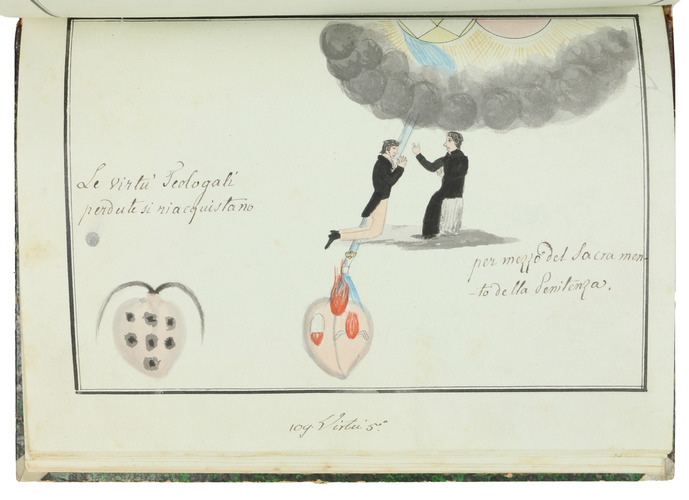 Le virtù Teologali
perdute si riacquistano
per mezzo del Sacramen-
-to della Penitenza.
109. Virtù 5.a